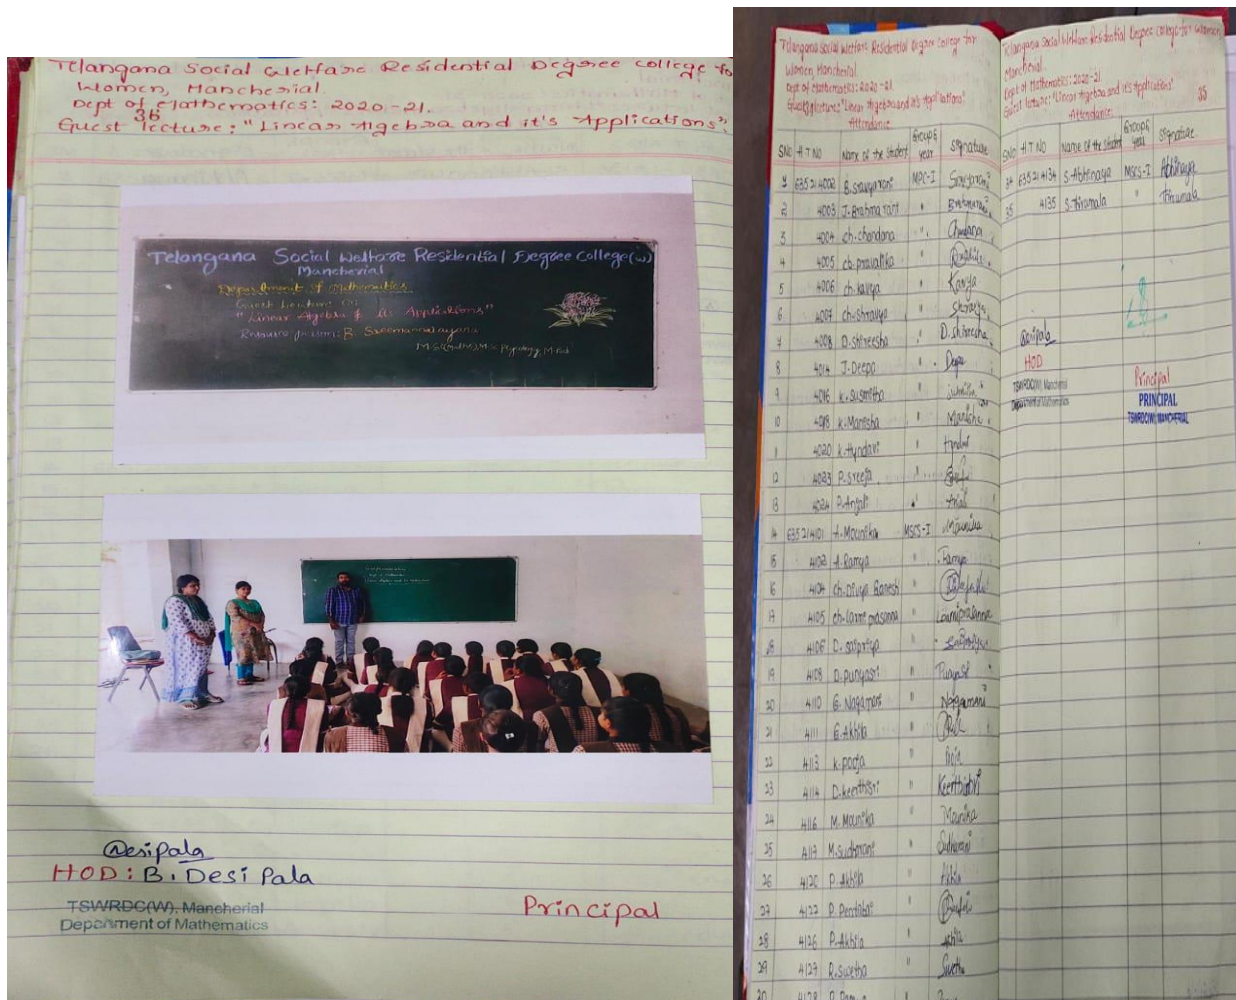 Telangana Social Welfare Residential Degree College for
Women, Mancherial.
Dept of Mathematics: 2020-21.
36
Guest lecture: "Linear Algebra and it's Applications".
Telangana Social Welfare Residential Degree College(W)
Mancherial
Department of Mathematics
Guest Lecture On
"Linear Algebra & its Applications"
Resource person: B Sreemannarayana
Desipala
HOD: B. Desi Pala
TSWRDC(W), Mancherial
Department of Mathematics
Principal
Telangana Social Welfare Residential Degree College for
Women, Mancherial
Dept of Mathematics: 2020-21
Guest lecture: "Linear Algebra and it's Applications"
Attendance
SNo H.T NO Name of the Student Group & year Signature
1 635214002 B. Sravyarani MPC-I Sravyarani
2 4003 J. Brahmarani " Brahmarani
3 4004 Ch. chandana " Chandana
4 4005 Ch. pravalika "
5 4006 Ch. kavya " Kavya
6 4007 Ch. shravya " Shravya
7 4008 D. Shireesha " D. Shireesha
8 4014 J. Deepa " Deepa
9 4016 K. Susmitha "
10 4018 K. Manisha " Manisha
11 4020 K. Hyndavi "
12 4023 P. Sreeja
13 4024 P. Anjali " Anjali
14 635214101 A. Mounika MSCS-I Mounika
15 4102 A. Ramya " Ramya
16 4104 Ch. Divya Ganesh "
17 4105 Ch. Laxmi prasanna " Laxmiprasanna
18 4106 D. Saipriya "
19 4108 D. Punyasri " Punyasri
20 4110 G. Nagamani " Nagamani
21 4111 G. Akhila "
22 4113 K. pooja " Pooja
23 4114 D. Keerthisri " Keerthisri
24 4116 M. Mounika " Mounika
25 4117 M. Sudharani " Sudharani
26 4120 P. Akhila " Akhila
27 4122 P. "
28 4126 P. Akhila " Akhila
29 4127 R. Swetha " Swetha
30 4128
Telangana Social Welfare Residential Degree College for Women
Mancherial.
Dept of Mathematics: 2020-21
Guest lecture: "Linear Algebra and it's Applications"
Attendance 35
SNo H.T NO Name of the Student Group & year Signature
34 635214134 S. Abhinaya MSCS-I Abhinaya
35 4135 S. Tirumala " Tirumala
Desipala
HOD
TSWRDC(W), Mancherial
Department of Mathematics
Principal
PRINCIPAL
TSWRDC(W) MANCHERIAL